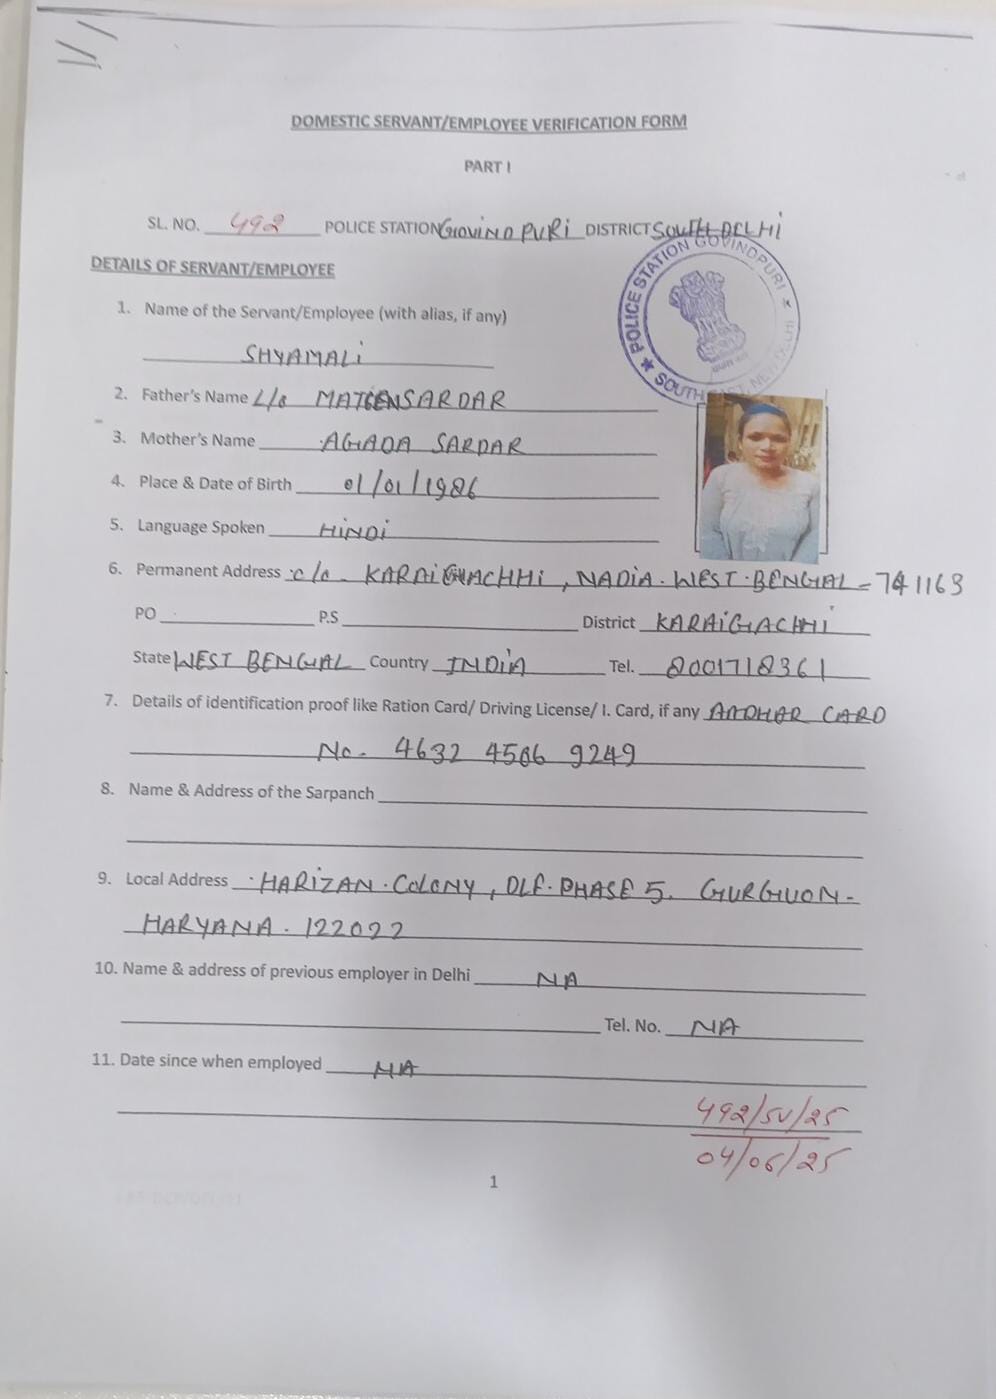 DOMESTIC SERVANT/EMPLOYEE VERIFICATION FORM
PART I
SL. NO. 492 POLICE STATION GOVIND PURI DISTRICT SOUTH DELHI
POLICE STATION GOVINDPURI ★ SOUTH EAST, NEW DELHI ★
DETAILS OF SERVANT/EMPLOYEE
1. Name of the Servant/Employee (with alias, if any)
SHYAMALI
2. Father's Name SARDAR
3. Mother's Name AGADA SARDAR
4. Place & Date of Birth 01/01/1986
5. Language Spoken HINDI
6. Permanent Address c/o - KARAIGHACHHI, NADIA. WEST. BENGAL - 741163
PO P.S District KARAIGACHHI
State WEST BENGAL Country INDIA Tel. 8001718361
7. Details of identification proof like Ration Card/ Driving License/ I. Card, if any CARD
No. 4632 4566 9249
8. Name & Address of the Sarpanch
9. Local Address HARIZAN. COLONY, DLF. PHASE 5. GURGUON-
HARYANA. 122022
10. Name & address of previous employer in Delhi NA
Tel. No. NA
11. Date since when employed NA
492/SV/25
04/06/25
1